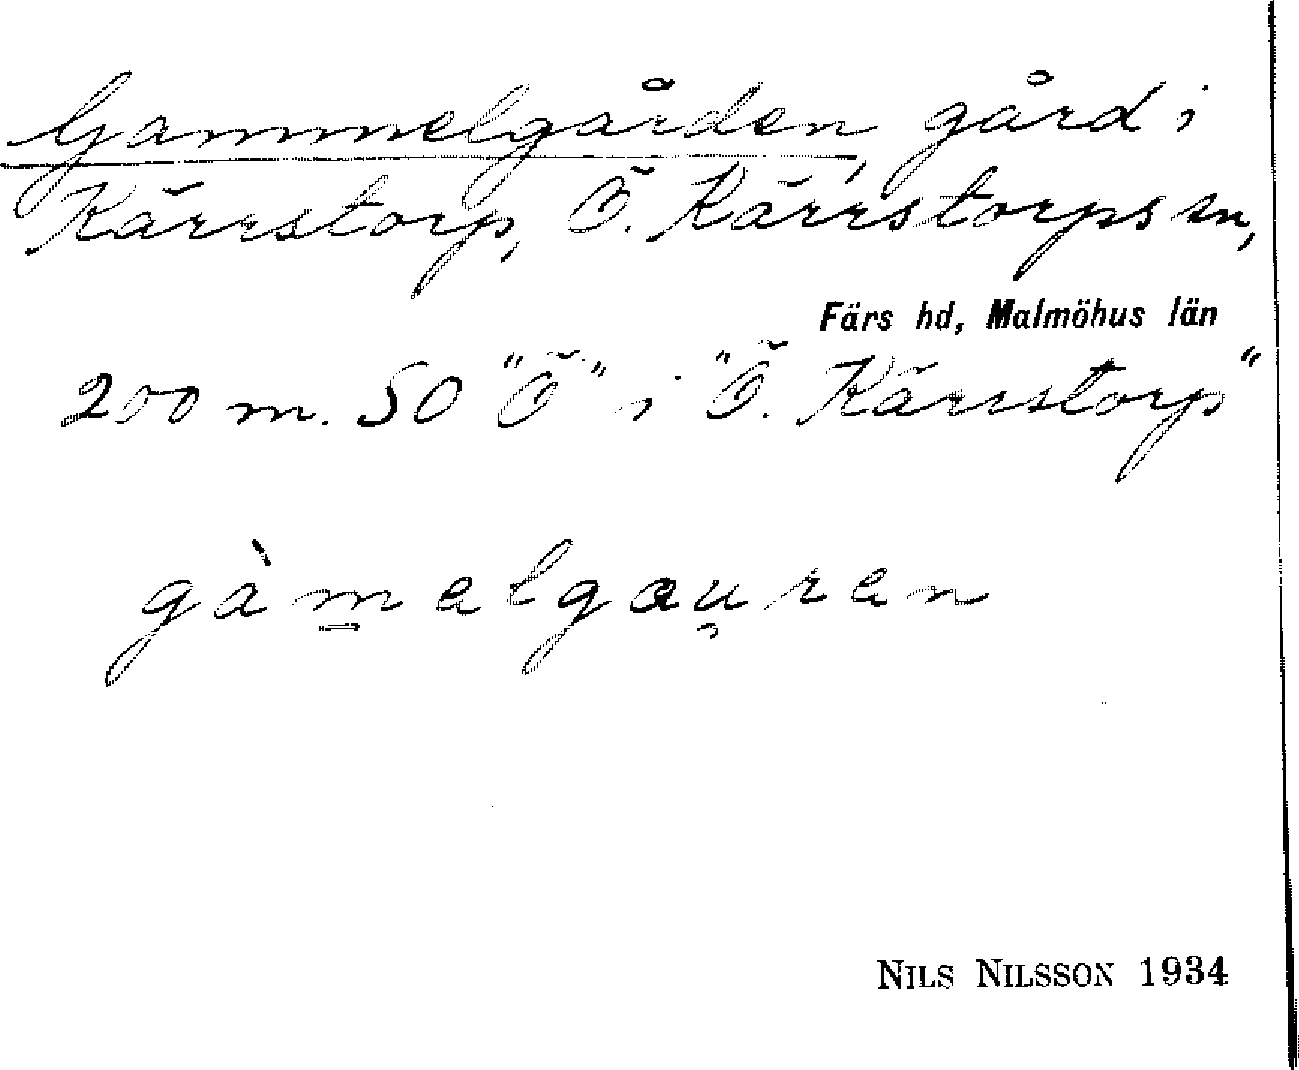 Gammelgården, gård i
Kärrstorp, Ö. Kärrstorps sn,
Färs hd, Malmöhus län
200 m. SO "Ö" i "Ö. Kärrstorp"
gàm̳elgau̯ren
NILS NILSSON 1934